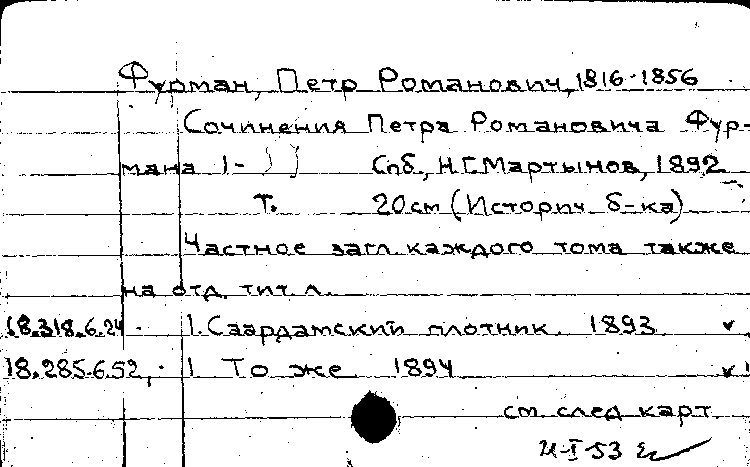 Фурман, Петр Романович, 1816-1856
Сочинения Петра Романовича Фур-
мана 1- Спб., Н.Г.Мартынов, 1892
т. 20см (Историч. б-ка)
Частное загл. каждого тома также
на отд. тит. л.
18.318.6.24 1. Саардамский плотник. 1893
18.285.6.52, 1. То же 1894
см. след. карт.
53